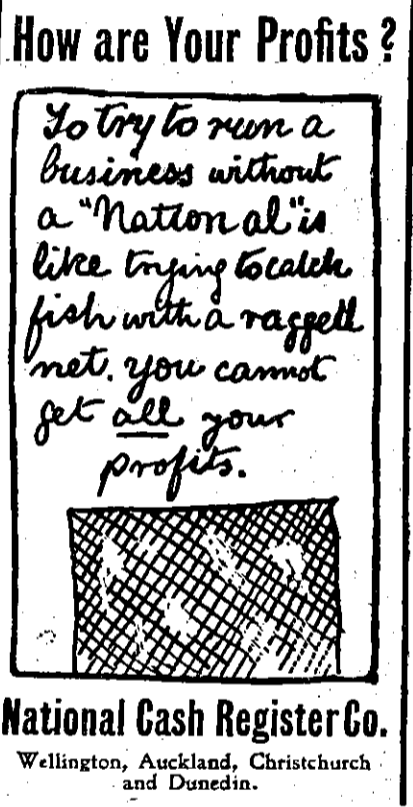 How are Your Profits?
To try to run a
business without
a "National" is
like trying to catch
fish with a ragged
net. you cannot
get all your
profits.
National Cash Register Co.
Wellington, Auckland, Christchurch
and Dunedin.